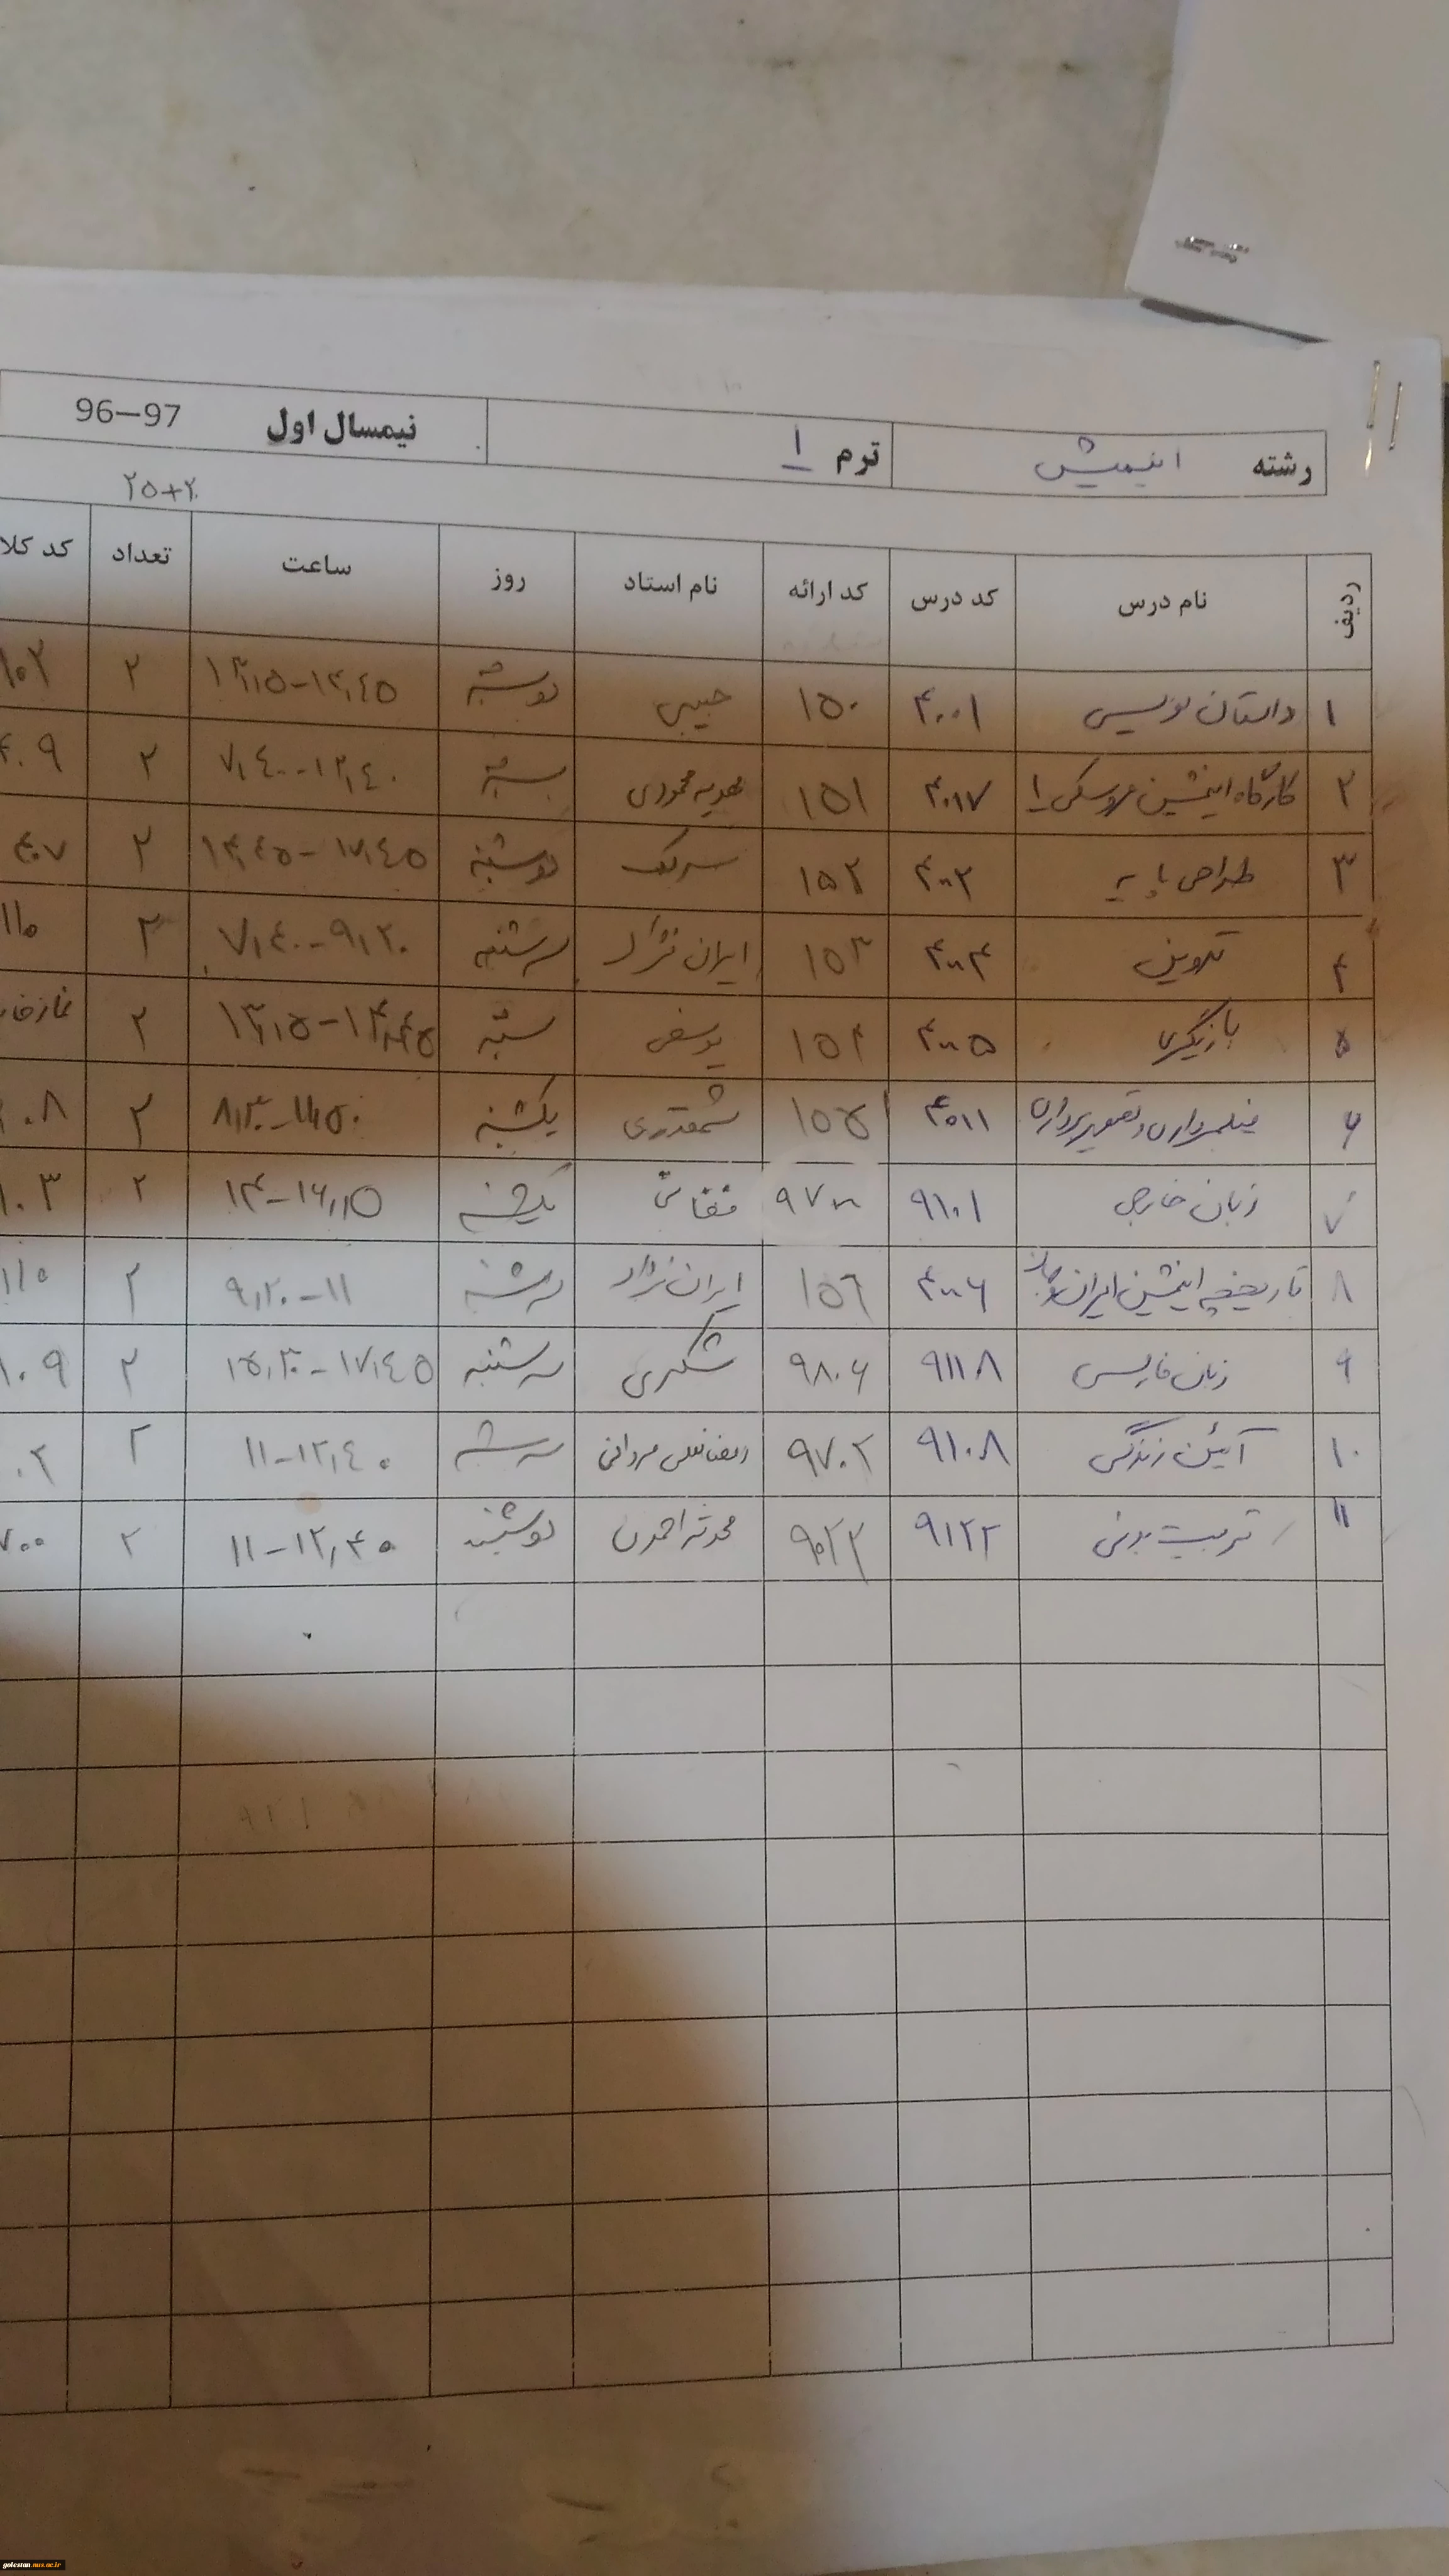 رشته انیمیشن ترم ۱ نیمسال اول 96-97
۲۵+۲۰
ردیف نام درس کد درس کد ارائه نام استاد روز ساعت تعداد کد کلا
۱ داستان نویسی ۴۰۰۱ ۱۵۰ حبیبی دوشنبه ۱۳,۱۵-۱۴,۴۵ ۲ ۱۰۲
۲ کارگاه انیمیشن عروسکی ۱ ۴۰۱۷ ۱۵۱ مهدیه محمودی شنبه ۷,۴۰-۱۲,۴۰ ۲ ۴۰۹
۳ طراحی پایه ۴۰۰۲ ۱۵۲ دوشنبه ۱۴,۴۵-۱۷,۴۵ ۲ ۴۰۷
۴ تدوین ۴۰۰۴ ۱۵۳ ایران نژاد سه شنبه ۷,۴۰-۹,۲۰ ۲ ۱۱۰
۵ بازیگری ۴۰۰۵ ۱۵۴ یوسفی شنبه ۱۳,۱۵-۱۴,۴۵ ۲ نمازخا
۶ فیلمبرداری و تصویربرداری ۴۰۱۱ ۱۵۵ شمقدری یکشنبه ۸,۳۰-۱۱,۵۰ ۲ ۰۸
۷ زبان خارجی ۹۱۰۱ ۹۷۰۰ یکشنبه ۱۴-۱۶,۱۵ ۲ ۱۰۳
۸ تاریخچه انیمیشن ایران و جهان ۴۰۰۶ ۱۵۶ ایران نژاد سه شنبه ۹,۲۰-۱۱ ۲ ۱۱۰
۹ زبان فارسی ۹۱۱۸ ۹۸۰۶ شکری سه شنبه ۱۵,۳۰-۱۷,۴۵ ۲ ۱۰۹
۱۰ آئین زندگی ۹۱۰۸ ۹۷۰۲ رمضانعلی مردانی سه شنبه ۱۱-۱۲,۴۰ ۲ ۰۲
۱۱ تربیت بدنی ۹۱۲۲ ۹۰۲۲ محدثه احمدی دوشنبه ۱۱-۱۲,۴۰ ۲ ۷۰۰
golestan.nus.ac.ir